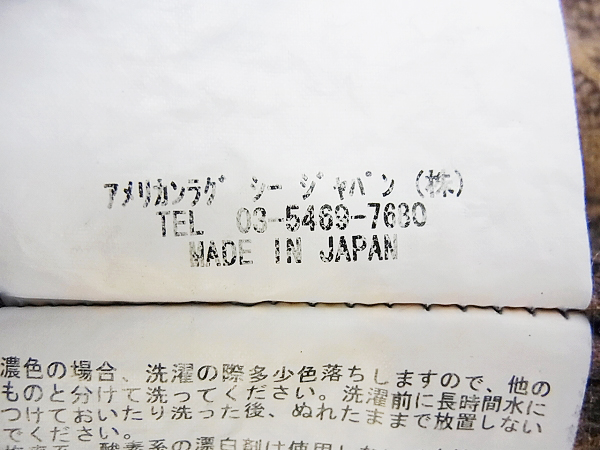 アメリカンラグ シー ジャパン (株)
TEL 03-5469-7630
MADE IN JAPAN
濃色の場合、洗濯の際多少色落ちしますので、他の
ものと分けて洗ってください。洗濯前に長時間水に
つけておいたり洗った後、ぬれたままで放置しない
でください。
酸素系の漂白剤は使用しない